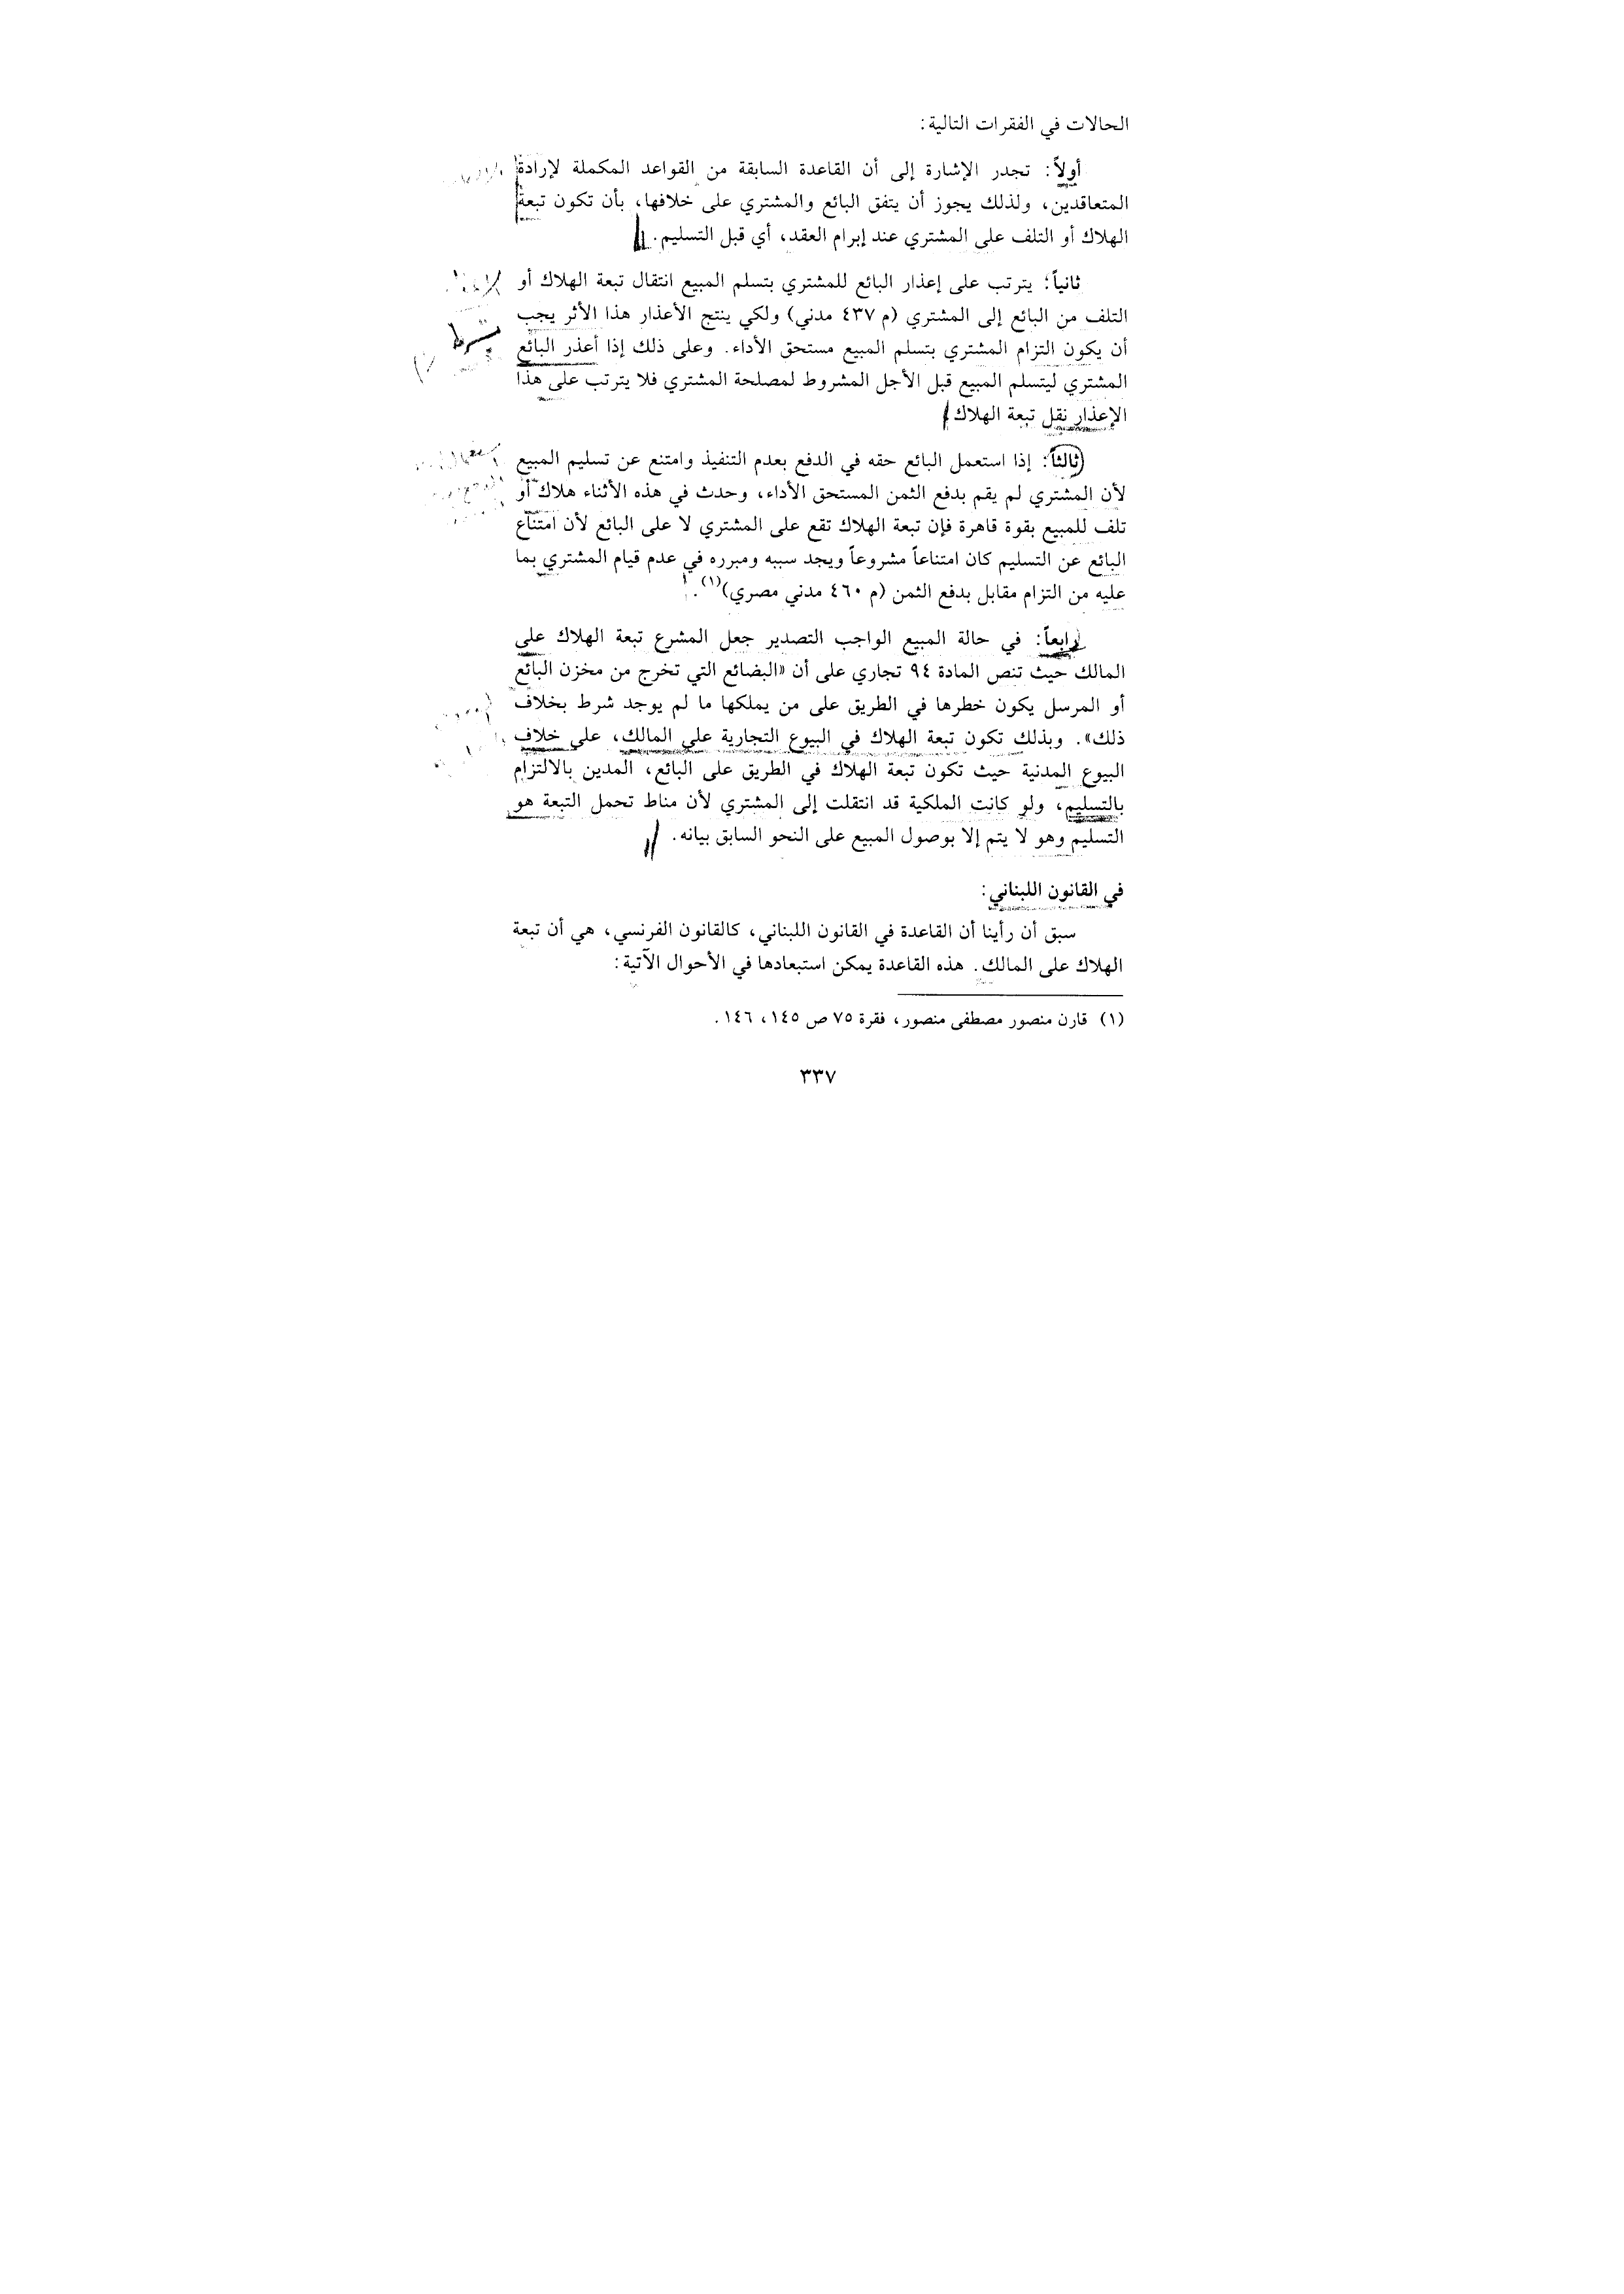 الحالات في الفقرات التالية:
أولاً: تجدر الإشارة إلى أن القاعدة السابقة من القواعد المكملة لإرادة
المتعاقدين، ولذلك يجوز أن يتفق البائع والمشتري على خلافها، بأن تكون تبعة
الهلاك أو التلف على المشتري عند إبرام العقد، أي قبل التسليم.
ثانياً: يترتب على إعذار البائع للمشتري بتسلم المبيع انتقال تبعة الهلاك أو
التلف من البائع إلى المشتري (م ٤٣٧ مدني) ولكي ينتج الأعذار هذا الأثر يجب
أن يكون التزام المشتري بتسلم المبيع مستحق الأداء. وعلى ذلك إذا أعذر البائع
المشتري ليتسلم المبيع قبل الأجل المشروط لمصلحة المشتري فلا يترتب على هذا
الإعذار نقل تبعة الهلاك
ثالثاً: إذا استعمل البائع حقه في الدفع بعدم التنفيذ وامتنع عن تسليم المبيع
لأن المشتري لم يقم بدفع الثمن المستحق الأداء، وحدث في هذه الأثناء هلاك أو
تلف للمبيع بقوة قاهرة فإن تبعة الهلاك تقع على المشتري لا على البائع لأن امتناع
البائع عن التسليم كان امتناعاً مشروعاً ويجد سببه ومبرره في عدم قيام المشتري بما
عليه من التزام مقابل بدفع الثمن (م ٤٦٠ مدني مصري)(١).
رابعاً: في حالة المبيع الواجب التصدير جعل المشرع تبعة الهلاك على
المالك حيث تنص المادة ٩٤ تجاري على أن «البضائع التي تخرج من مخزن البائع
أو المرسل يكون خطرها في الطريق على من يملكها ما لم يوجد شرط بخلاف
ذلك». وبذلك تكون تبعة الهلاك في البيوع التجارية على المالك، على خلاف
البيوع المدنية حيث تكون تبعة الهلاك في الطريق على البائع، المدين بالالتزام
بالتسليم، ولو كانت الملكية قد انتقلت إلى المشتري لأن مناط تحمل التبعة هو
التسليم وهو لا يتم إلا بوصول المبيع على النحو السابق بيانه.
في القانون اللبناني:
سبق أن رأينا أن القاعدة في القانون اللبناني، كالقانون الفرنسي، هي أن تبعة
الهلاك على المالك. هذه القاعدة يمكن استبعادها في الأحوال الآتية:
(١) قارن منصور مصطفى منصور، فقرة ٧٥ ص ١٤٥، ١٤٦.
٣٣٧